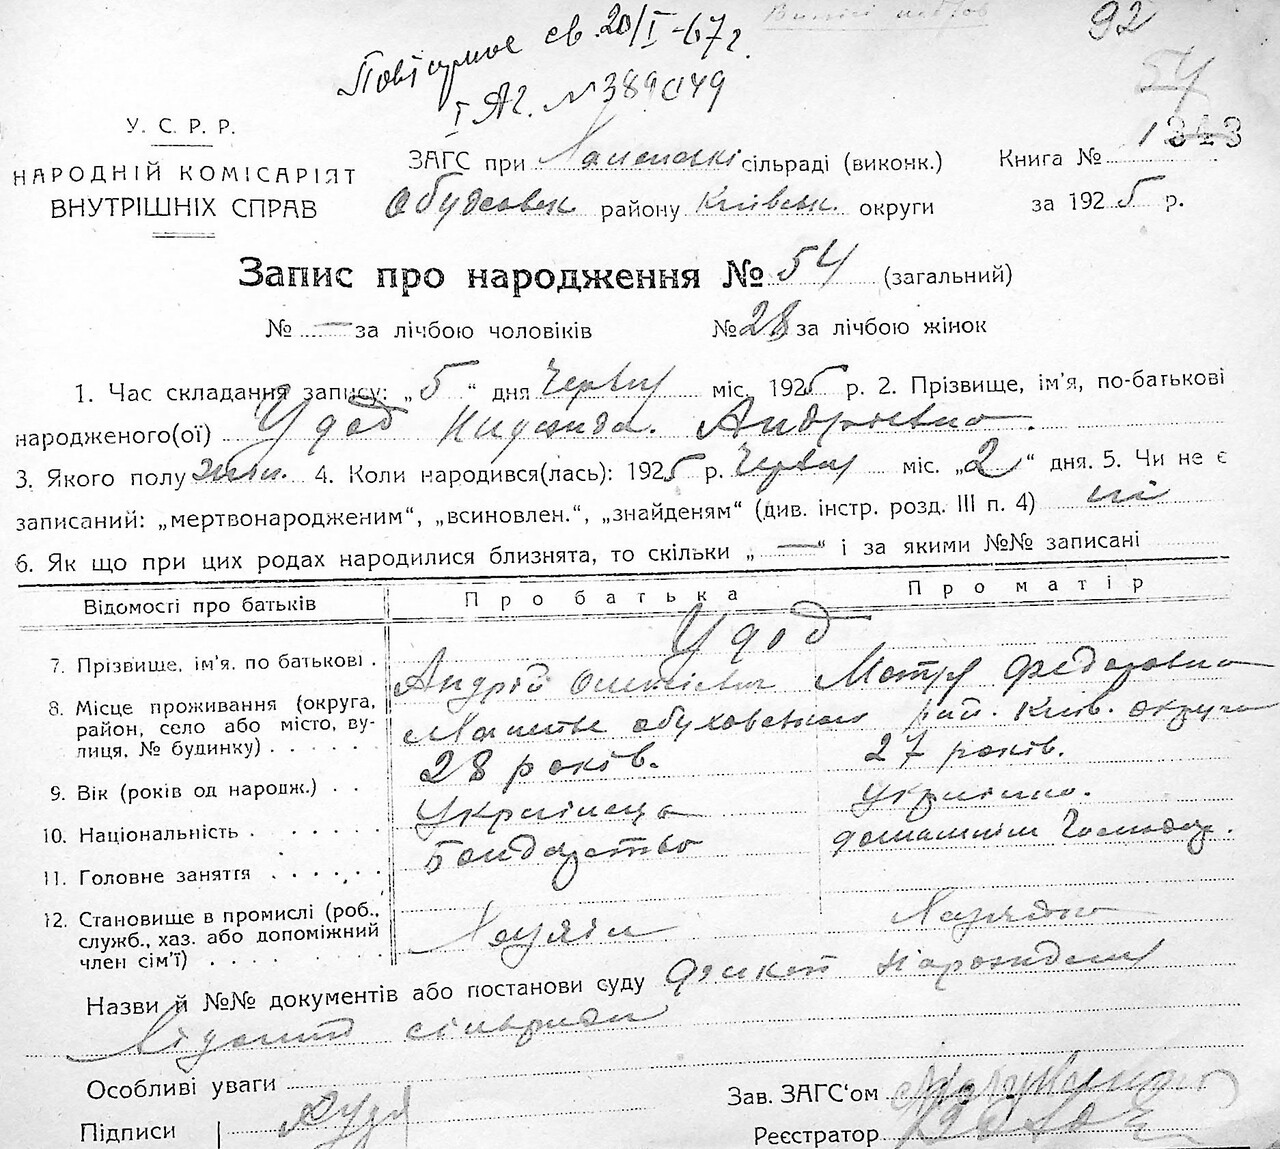 92
Повторное св. 20/I-67 г.
54
I АГ. № 389049
У. С. Р. Р.
НАРОДНІЙ КОМІСАРІЯТ
ВНУТРІШНІХ СПРАВ
ЗАГС при сільраді (виконк.) Книга № 1343
району Київськ. округи за 1925 р.
Запис про народження № 54 (загальний)
№ — за лічбою чоловіків № 28 за лічбою жінок
1. Час складання запису: „5“ дня Червня міс. 1925 р. 2. Прізвище, ім'я, по-батькові
народженого(ої) Удод Надежда. Андріевна.
3. Якого полу жін. 4. Коли народився(лась): 1925 р. Червня міс. „2“ дня. 5. Чи не є
записаний: „мертвонародженим“, „всиновлен.“, „знайденям“ (див. інстр. розд. III п. 4) ні
6. Як що при цих родах народилися близнята, то скільки „—“ і за якими №№ записані
Відомості про батьків Про батька Про матір
Удод
7. Прізвище, ім'я, по батькові . Андрій Мотря Федоровна
8. Місце проживання (округа, район, село або місто, вулиця, № будинку) . . . . . обуховського рай. Київ. округа
9. Вік (років од народж.) . . 28 років. 27 років.
10. Національність . . . . . . Українець українка.
11. Головне заняття . . . . . . Бондарство домашнім Господар.
12. Становище в промислі (роб.,
служб., хаз. або допоміжний
член сім'ї) . . . . . . . . Хазяін
Назви й №№ документів або постанови суду факт народження
відомий сільради
Особливі уваги
Зав. ЗАГС'ом
Підписи
Реєстратор